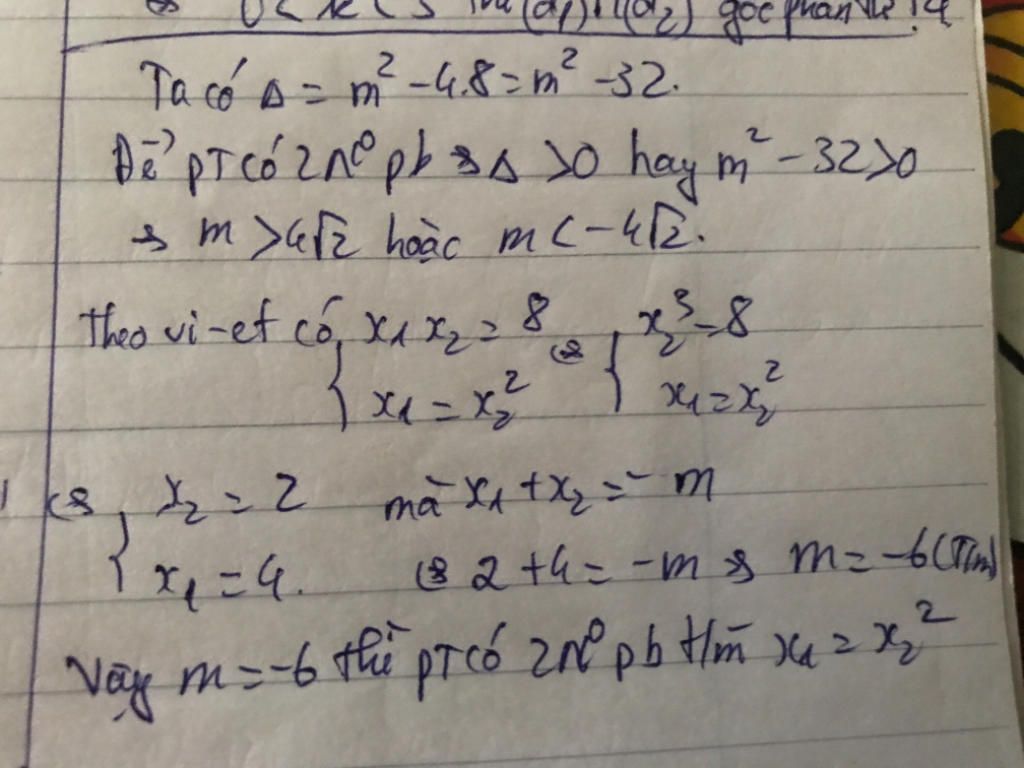 0 < k < 3 thì (d1), (d2) góc phần tư
Ta có Δ = m² - 4.8 = m² - 32.
Để PT có 2 n⁰ pb => Δ > 0 hay m² - 32 > 0
=> m > 4√2 hoặc m < -4√2.
Theo vi-et có { x₁ x₂ = 8 <=> { x₂³ = 8
x₁ = x₂² x₁ = x₂²
<=> { x₂ = 2 mà x₁ + x₂ = -m
x₁ = 4. <=> 2 + 4 = -m => m = -6 (T/m)
Vậy m = -6 thì PT có 2 n⁰ pb t/m x₁ = x₂²